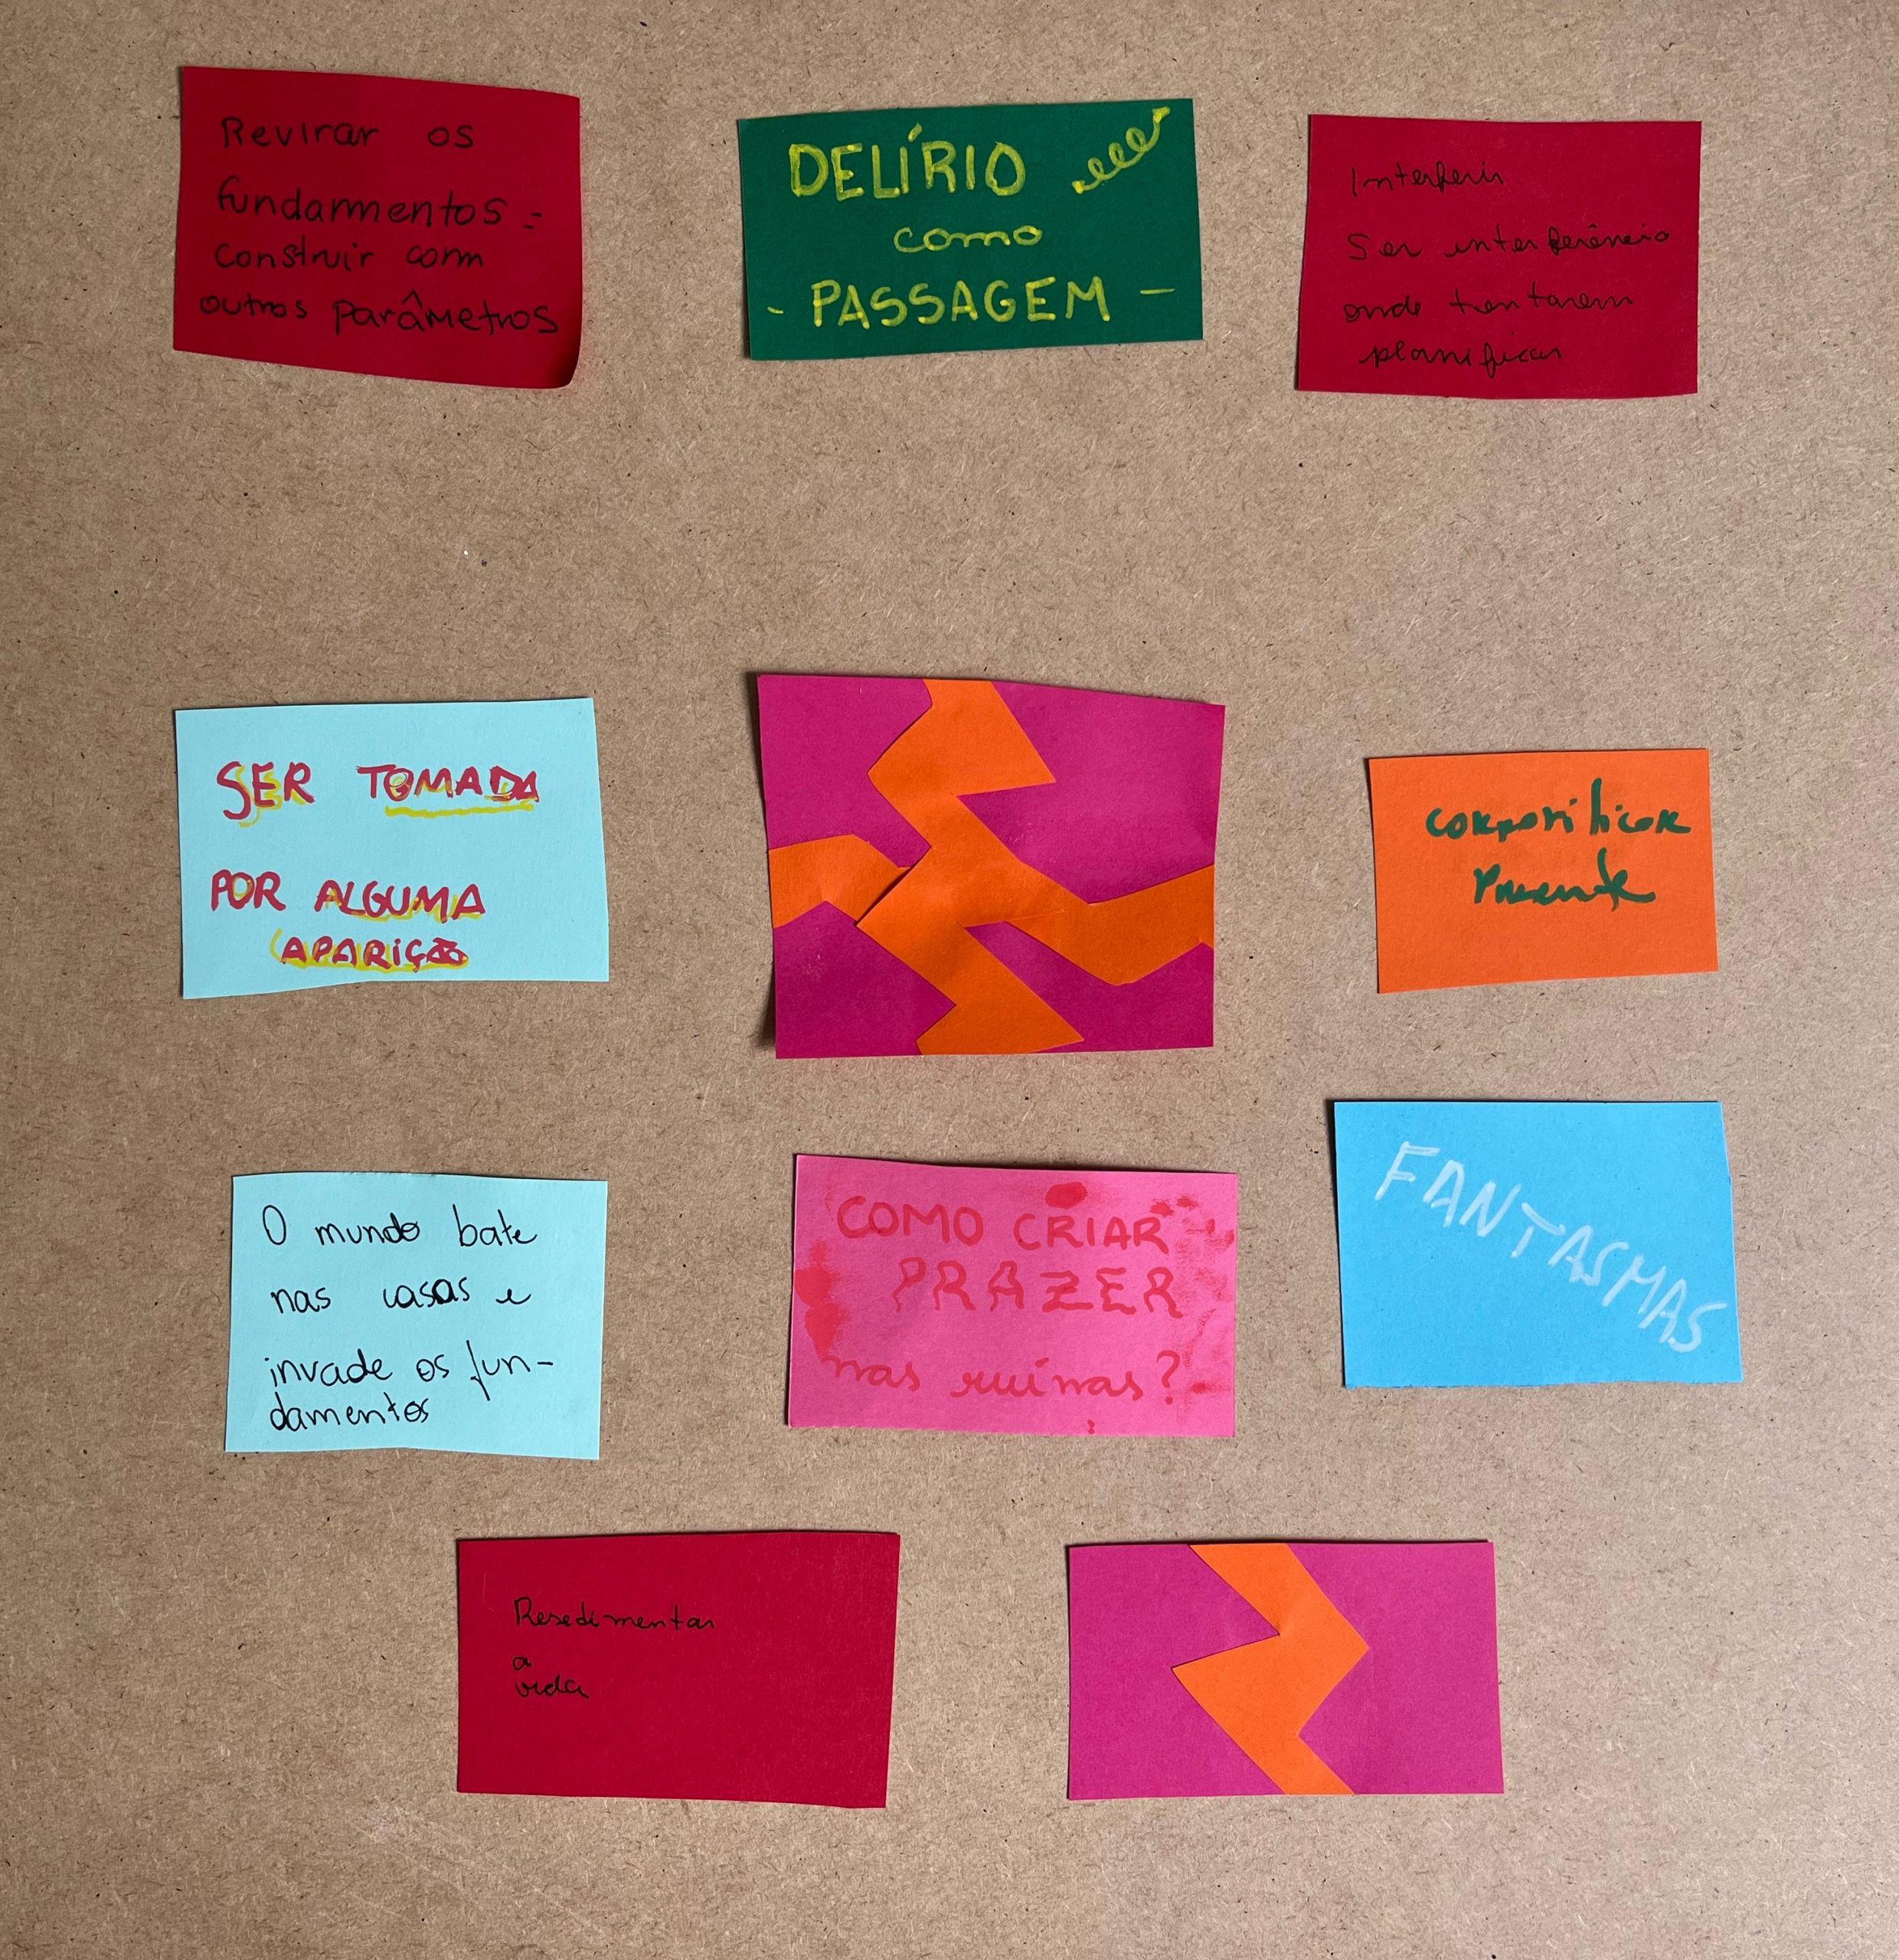 Revirar os
fundamentos =
construir com
outros parâmetros
DELÍRIO
como
- PASSAGEM -
Interferir
Ser interferência
onde tentarem
planificar
SER TOMADA
POR ALGUMA
APARIÇÃO
O mundo bate
nas casas e
invade os fun-
damentos
COMO CRIAR
PRAZER
nas ruínas?
FANTASMAS
Resedimentar
a
vida